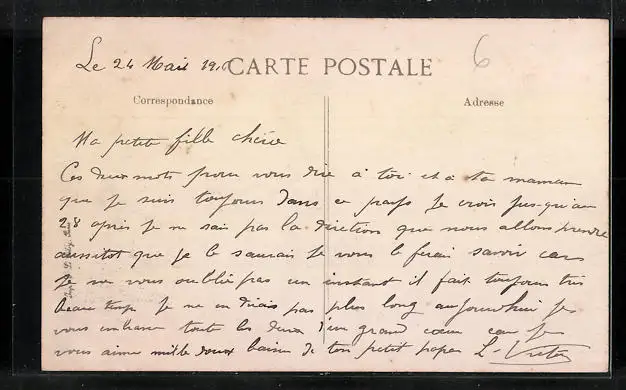 Le 24 Mai 19
CARTE POSTALE
6
Correspondance
Adresse
Ma petite fille chérie
Ces deux mots pour vous dire à toi et à ta maman
que je suis toujours dans ce pays je crois jusqu'au
28 après je ne sais pas la direction que nous allons prendre
aussitot que je le saurais je vous le ferai savoir car
je ne vous oublie pas un instant il fait toujours très
beau temps je ne en dirais pas plus long aujourd'hui je
vous embrasse toute les deux d'un grand cœur car je
vous aime mille doux baisers de ton petit papa L.